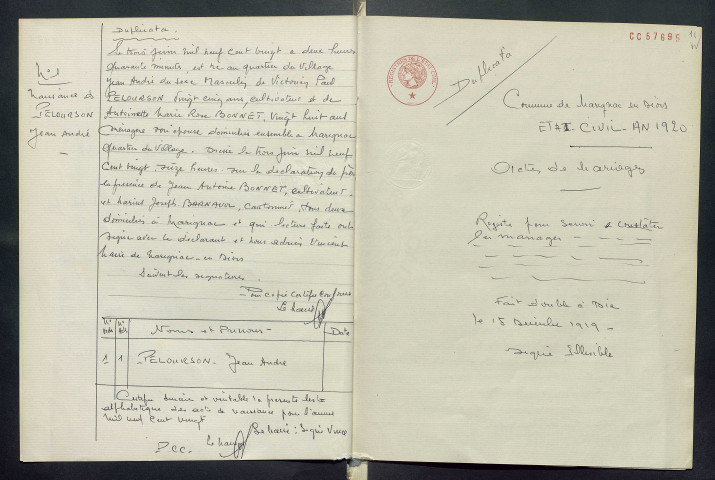 Duplicata.
N° 1
Naissance de
PELOURSON
Jean André
Le trois juin mil neuf cent vingt à deux heures
quarante minute, est né au quartier du Village
Jean André du sexe Masculin, de Victorin Paul
PELOURSON vingt cinq ans, cultivateur et de
Antoinette Marie Rose BONNET, vingt huit ans
ménagère son épouse domiciliés ensemble à Marignac
quartier du Village. Dressé le trois juin mil neuf
cent vingt, seize heures, sur la déclaration du père
en présence de Jean Antoine BONNET, cultivateur
et Marius Joseph BARNAUD, cantonnier, tous deux
domiciliés à Marignac et qui lecture faite ont
signé avec le déclarant et nous Vincent
Maire de Marignac-en-Diois
Suivent les signatures.
Pour copie certifiée conforme
Le Maire
N° N° Noms et Prénoms - Date
1 1 PELOURSON Jean André
Certifié sincère et véritable la présente liste
alphabétique des actes de naissance pour l'année
mil neuf cent vingt
Le Maire : Signé Vincent
P.C.C. Le Maire
CC57685
Duplicata
Commune de Marignac en Diois
ETAT CIVIL - AN 1920
Actes de Mariages
Registre pour servir à constater
les mariages
Fait double à Die
le 15 Décembre 1919 -
signé Illisible